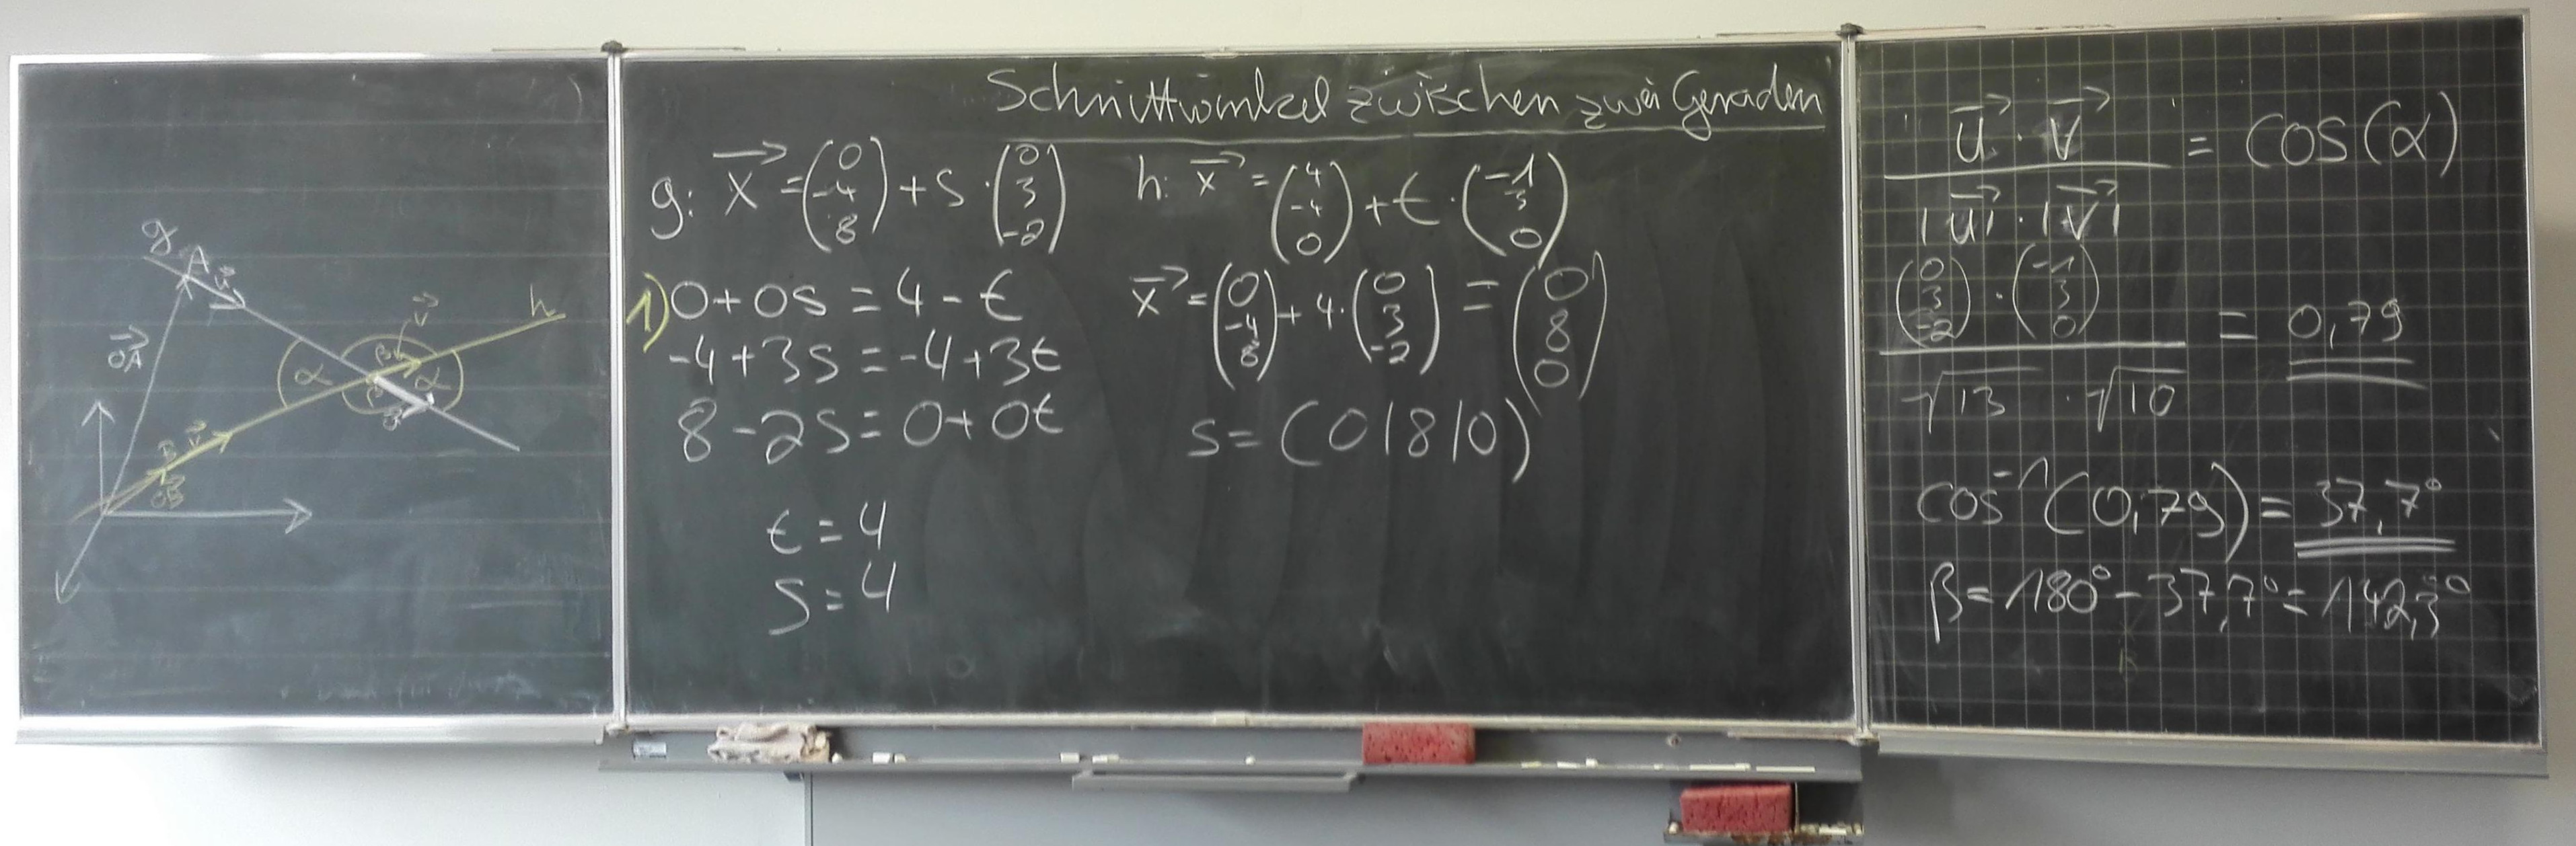 g
A
u⃗
OA⃗
v⃗
h
α
β
α
β
u⃗
B
v⃗
OB⃗
Schnittwinkel zwischen zwei Geraden
g: x⃗ = (0 -4 8) + s · (0 3 -2)
h: x⃗ = (4 -4 0) + t · (-1 3 0)
1) 0+0s = 4-t
-4+3s = -4+3t
8-2s = 0+0t
t = 4
s = 4
x⃗ = (0 -4 8) + 4 · (0 3 -2) = (0 8 0)
S = (0|8|0)
u⃗ · v⃗ / |u⃗| · |v⃗| = cos(α)
(0 3 -2) · (-1 3 0) / √13 · √10 = 0,79
cos⁻¹(0,79) = 37,7°
β = 180° - 37,7° = 142,3°